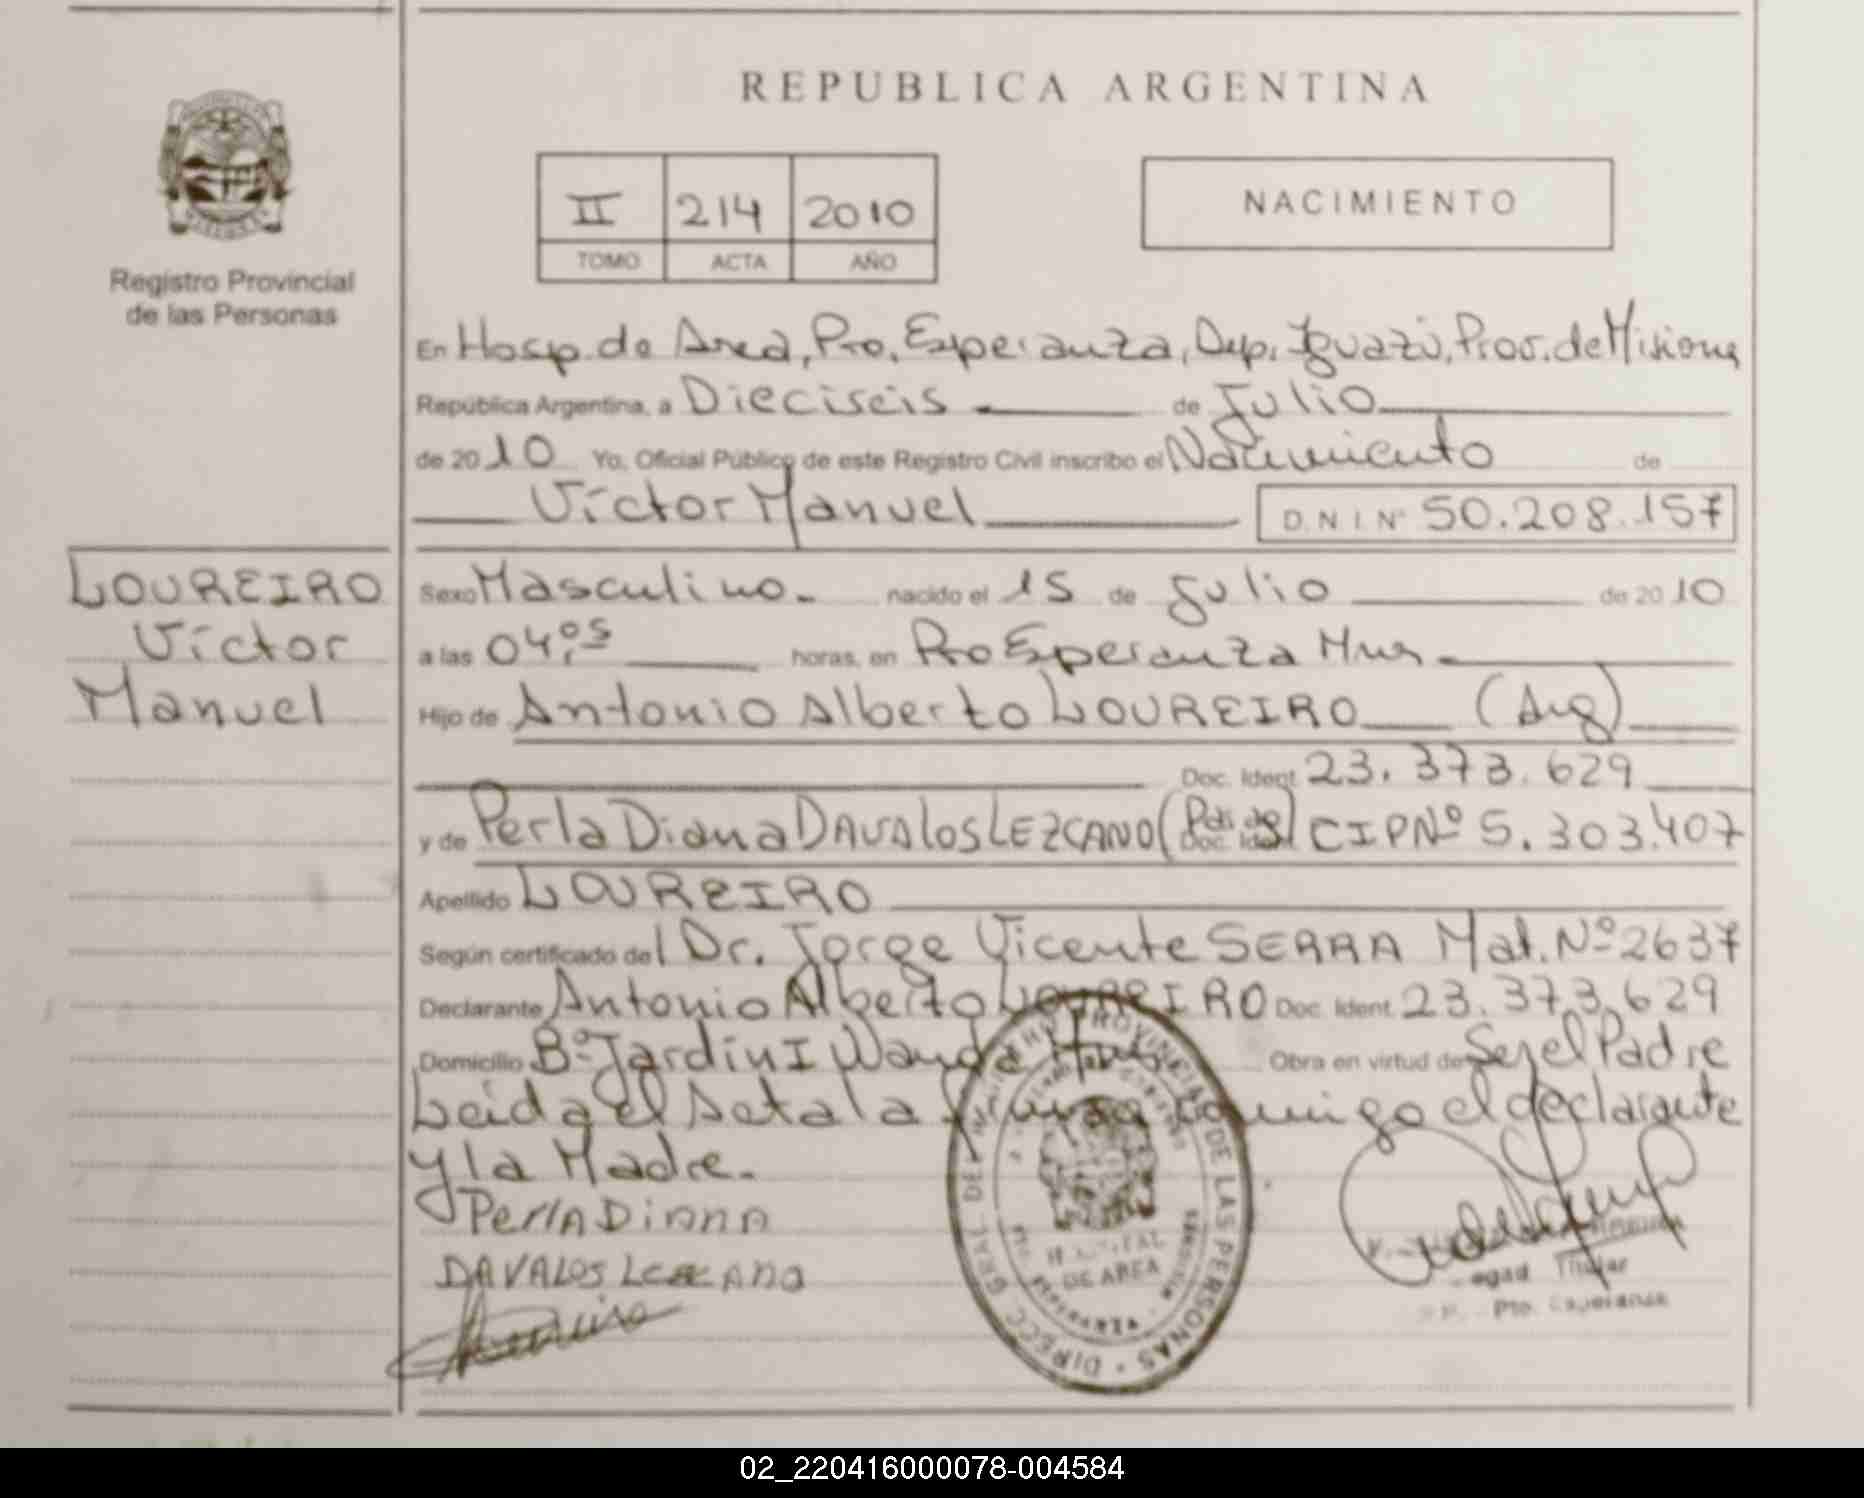 REPUBLICA ARGENTINA
II 214 2010
TOMO ACTA AÑO
NACIMIENTO
Registro Provincial
de las Personas
En Hosp. de Area, Pto. Esperanza, Dep. Iguazú, Prov. de Misiones
República Argentina, a Dieciseis de Julio
de 2010 Yo, Oficial Público de este Registro Civil inscribo el Nacimiento de
Víctor Manuel D.N.I.Nº 50.208.157
LOUREIRO
Víctor
Manuel
Sexo Masculino. nacido el 15 de Julio de 2010
a las 04,05 horas, en Pto Esperanza Mnes.
Hijo de Antonio Alberto LOUREIRO (Arg)
Doc. Ident. 23.373.629
y de Perla Diana DAVALOS LEZCANO Doc. Ident. CIPNº 5.303.407
Apellido LOUREIRO
Según certificado del Dr. Jorge Vicente SERRA Mat. Nº 2637
Declarante Antonio Alberto LOUREIRO Doc. Ident. 23.373.629
Domicilio Bº Jardin I Wanda Mnes Obra en virtud de Ser el Padre
Leida el Acta la firma conmigo el declarante
y la Madre.
Perla Diana
DAVALOS Lezcano
DIRECC. GRAL. DEL REGISTRO PROVINCIAL DE LAS PERSONAS
HOSPITAL
DE AREA
Titular
Pto. Esperanza
02_220416000078-004584